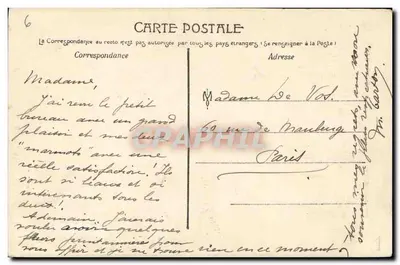 6
CARTE POSTALE
La Correspondance au recto n'est pas autorisée par tous les pays étrangers (Se renseigner à la Poste)
Correspondance
Adresse
Madame,
J'ai remi le petit
bureau avec un grand
plaisir et mes deux
"marmots" avec une
réelle satisfaction! Ils
sont si beaux et si
intéressants tous les
deux!
A demain. J'aurais
voulu avoir quelques
fleurs printannières pour
vous offrir et je ne trouve rien en ce moment
Madame De Vos.
60 rue de Maubeuge
Paris
CPAPHIL
Tous mes respects, au
souvenir le plus
1